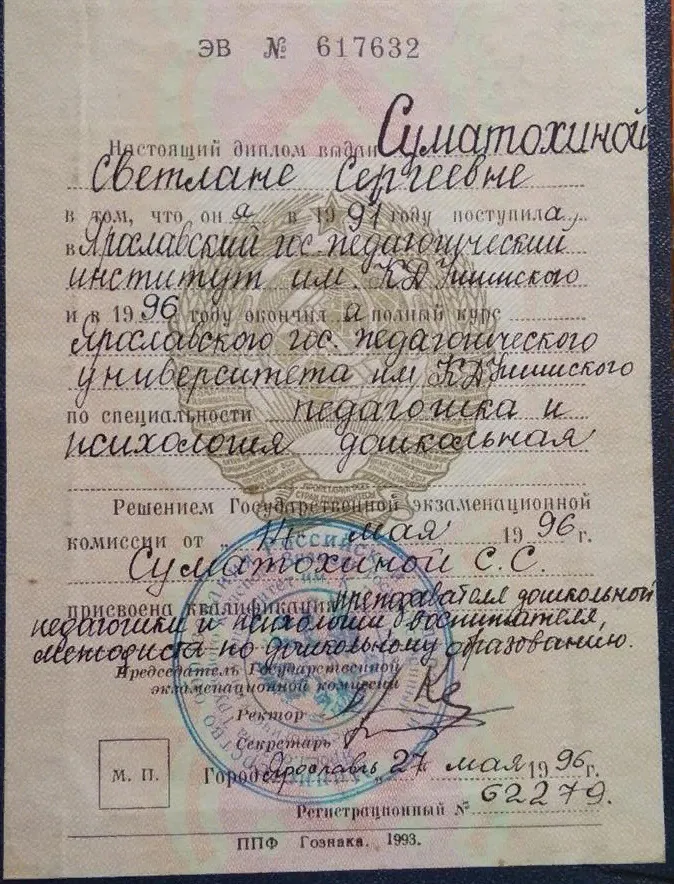 ЭВ № 617632
Настоящий диплом выдан Суматохиной
Светлане Сергеевне
в том, что он а в 1991 году поступила
в Ярославский гос. педагогический
институт им. КД Ушинского
и в 1996 году окончил а полный курс
Ярославского гос. педагогического
университета им. КД Ушинского
по специальности педагогика и
психология дошкольная
Решением Государственной экзаменационной
комиссии от мая 1996 г.
Суматохиной С. С.
присвоена квалификация преподавателя дошкольной
педагогики и психологии, воспитателя,
методиста по дошкольному образованию.
Председатель Государственной
экзаменационной комиссии
Ректор
Секретарь
М. П. Город Ярославль 27 мая 1996 г.
Регистрационный № 62279.
ППФ Гознака. 1993.